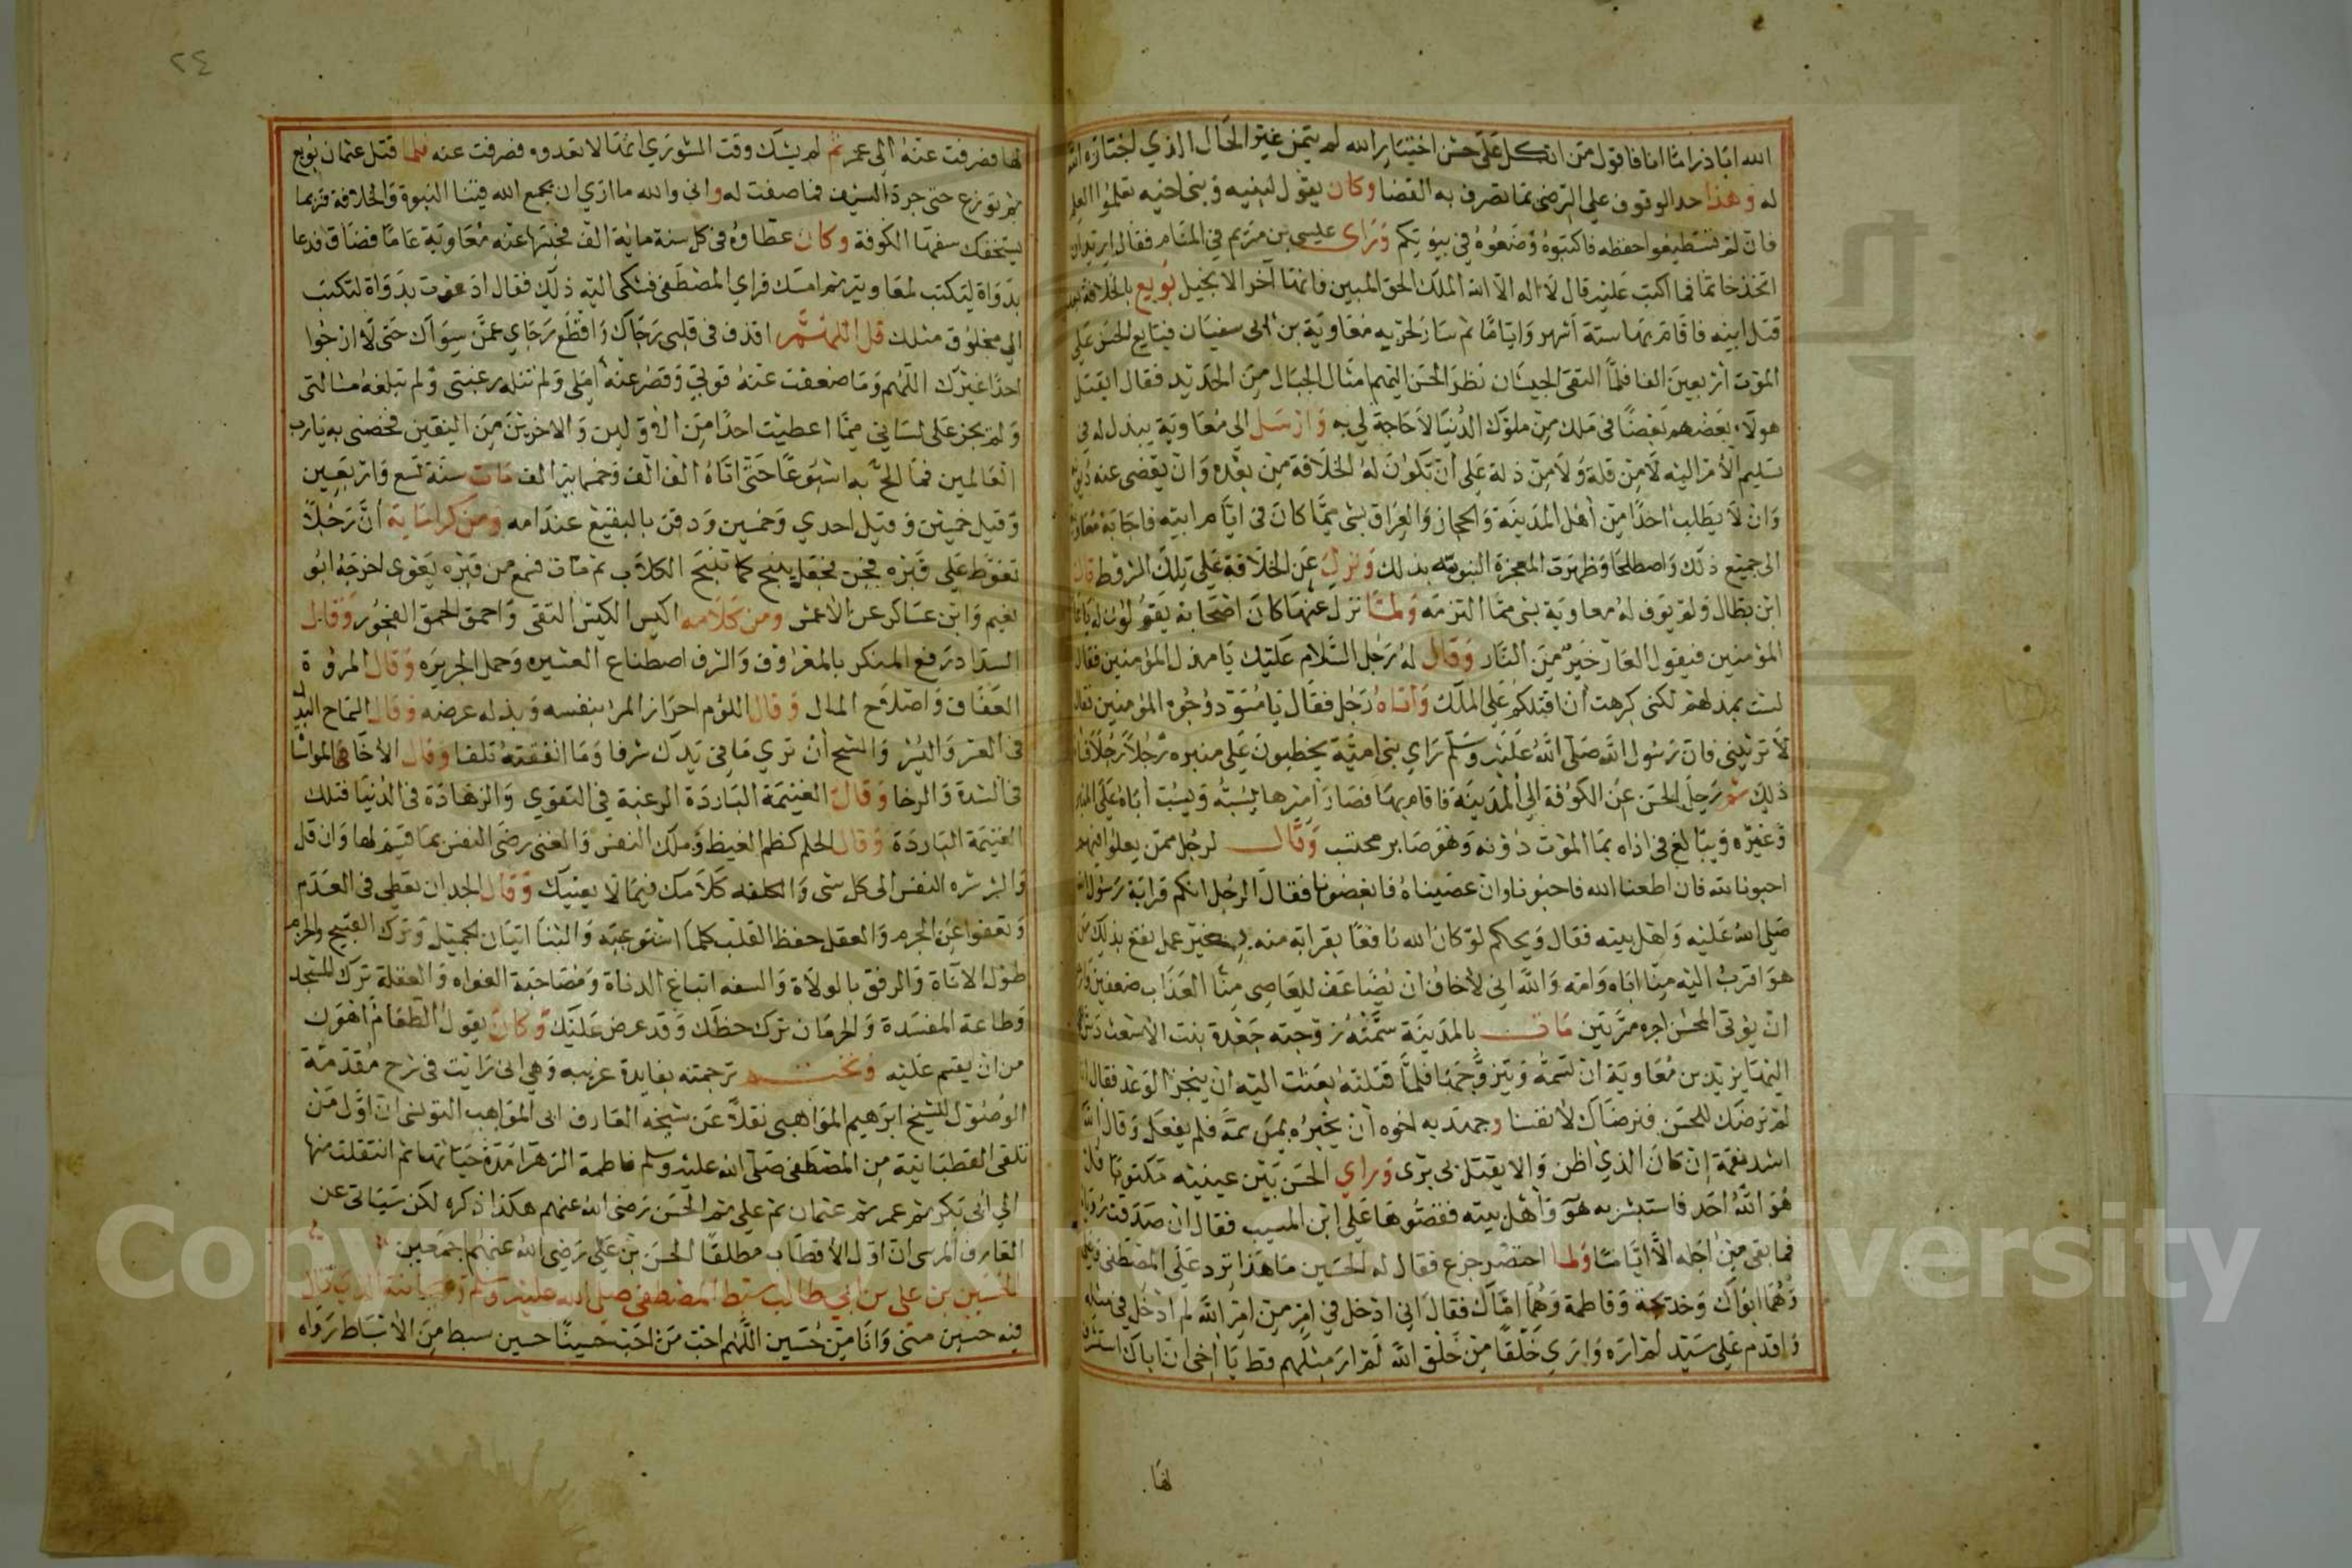 الله ابا ذر اما انا فاقول من اتكل على حسن اختيار الله لم يتمن غير الحال الذي اختاره الله
له وهذا حد الوقوف على الرضى بما تصرف به القضا وكان يقول لبنيه وبني اخيه تعلموا العلم
فان لم تستطيعوا حفظه فاكتبوه وضعوه في بيوتكم وراى عيسى بن مريم في المنام فقال اريد ان
اتخذ خاتما فما اكتب عليه قال لا اله الا الله الملك الحق المبين فانها آخر الانجيل بويع بالخلافة بعد
قتل ابيه فاقام بها ستة اشهر واياما ثم سار لحربه معاوية بن ابى سفيان فبايع الحسن على
الموت اربعين الفا فلما التقى الجيشان نظر الحسن اليهم امثال الجبال من الحديد فقال ايقتل
هولاء بعضهم بعضا فى ملك من ملوك الدنيا لا حاجة لي به وارسل الى معاوية يبذل له في
تسليم الامر اليه لا من قلة ولا من ذلة على ان تكون له الخلافة من بعده وان يقضى عنه ديونه
وان لا يطلب احدا من اهل المدينة والحجاز والعراق بشى مما كان فى ايام ابيه فاجابه معاوية
الى جميع ذلك واصطلحا وظهرت المعجزة النبويه بذلك ونزل عن الخلافة على تلك الشروط قال
ابن بطال ولم يوف له معاوية بشى مما التزمه ولما نزل عنها كان اصحابه يقولون له يا عار
المؤمنين فيقول العار خير من النار وقال له رجل السلام عليك يا مذل المؤمنين فقال
لست بمذلهم لكنى كرهت ان اقتلكم على الملك واتاه رجل فقال يا مسود وجوه المؤمنين فقال
لا تؤنبنى فان رسول الله صلى الله عليه وسلم راي بني امية يخطبون على منبره رجلا رجلا فساه
ذلك ثم رحل الحسن عن الكوفة الى المدينة فاقام بها فصار اميرها يسبه ويسب اباه على المنبر
وغيره ويبالغ فى اذاه بما الموت دونه وهو صابر محتسب وقال لرجل ممن يغلوا فيهم
احبونا لله فان اطعنا الله فاحبونا وان عصيناه فابغضونا فقال الرجل انكم قرابة رسول الله
صلى الله عليه واهل بيته فقال ويحكم لو كان الله نافعا بقرابه منه بغير عمل نفع بذلك من
هو اقرب اليه منا اباه وامه والله اني لاخاف ان يضاعف للعاصي منا العذاب ضعفين وان
ان يؤتى المحسن اجره مرتين مات بالمدينة سمته زوجته جعدة بنت الاشعث دس
اليها يزيد بن معاوية ان تسمه ويتزوجها فلما قتلته بعثت اليه ان ينجز الوعد فقال انا
لم نرضك للحسن فنرضاك لانفسنا وجهد به اخوه ان يخبره بمن سمه فلم يفعل وقال الله
اشد نقمة ان كان الذي اظن والا يقتل بى برى وراي الحسن بين عينيه مكتوبا قل
هو الله احد فاستبشر به هو واهل بيته فقصوها على ابن المسيب فقال ان صدقت رؤياه
فما بقى من اجله الا اياما ولما احتضر جزع فقال له الحسين ما هذا ترد على المصطفى وعلى
وهما ابواك وخديجة وفاطمة وهما اماك فقال اني ادخل في امر من امر الله لم ادخل في مثله
واقدم على سيد لم اره وارى خلقا من خلق الله لم ار مثلهم قط يا اخى ان اباك استشرف
لها
٢٤
لها فصرفت عنه الى عمر ثم لم يشك وقت الشوري انها لا تعدوه فصرفت عنه فلما قتل عثمان بويع
ثم نوزع حتى جرد السيف فما صفت له واني والله ما اري ان يجمع الله فينا النبوة والخلافة فربما
يستخفك سفها الكوفة وكان عطاؤه فى كل سنة ماية الف فحبسها عنه معاوية عاما فضاق فدعا
بدواة ليكتب لمعاوية ثم امسك فراي المصطفى فشكى اليه ذلك فقال ادعوت بدواة لتكتب
الى مخلوق مثلك قل اللهم اقذف فى قلبى رجاك واقطع رجاي عمن سواك حتى لا ارجوا
احدا غيرك اللهم وما ضعفت عنه قوتي وقصر عنه املى ولم تنله رغبتى ولم تبلغه مسالتى
ولم يجر على لساني مما اعطيت احدا من الاولين والاخرين من اليقين فخصنى به يا رب
العالمين فما الح به اسبوعا حتى اتاه الف الف وخمسماية الف مات سنة تسع واربعين
وقيل خمسين وقيل احدي وخمسين ودفن بالبقيع عند امه ومن كراماته ان رجلا
تغوط على قبره فجن فجعل ينبح كما تنبح الكلاب ثم مات فسمع من قبره يعوى اخرجه ابو
نعيم وابن عساكر عن الاعمش ومن كلامه اكيس الكيس التقى واحمق الحمق الفجور وقال
السداد رفع المنكر بالمعروف والشرف اصطناع العشيره وحمل الجريره وقال المروة
العفاف واصلاح المال وقال اللؤم احراز المرا نفسه وبذله عرضه وقال السماح البذل
فى العسر واليسر والشح ان تري ما في يدك شرفا وما انفقته تلفا وقال الاخا المواسا
فى الشدة والرخا وقال الغنيمة الباردة الرغبة في التقوي والزهادة فى الدنيا فتلك
الغنيمة الباردة وقال الحلم كظم الغيظ وملك النفس والغنى رضى النفس بما قسم لها وان قل
والشر شره النفس الى كل شى والكلفه كلامك فيما لا يعنيك وقال المجد ان تعطي فى العدم
وتعفوا عن الجرم والعقل حفظ القلب كلما استوعبته والثنا اتيان الجميل وترك القبيح والحزم
طول الاناة والرفق بالولاة والسفه اتباع الدناة ومصاحبة الغواه والغفلة ترك المسجد
وطاعة المفسدة والحرمان ترك حظك وقد عرض عليك وكان يقول الطعام اهون
من ان يقسم عليه ونختم ترجمته بفايدة غريبه وهي انى رايت فى شرح مقدمة
الوصول للشيخ ابرهيم المواهبى نقلا عن شيخه العارف ابى المواهب التونسى ان اول من
تلقى القطبانية من المصطفى صلى الله عليه وسلم فاطمة الزهرا مدة حياتها ثم انتقلت منها
الى ابى بكر ثم عمر ثم عثمان ثم علي ثم الحسن رضى الله عنهم هكذا ذكره لكن سياتى عن
العارف المرسى ان اول الاقطاب مطلقا الحسن بن علي رضى الله عنهم اجمعين
الحسين بن على بن ابي طالب سبط المصطفى صلى الله عليه وسلم وريحانته الذي قال
فيه حسين منى وانا من حسين اللهم احب من احب حسينا حسين سبط من الاسباط رواه
Copyright © King Saud University